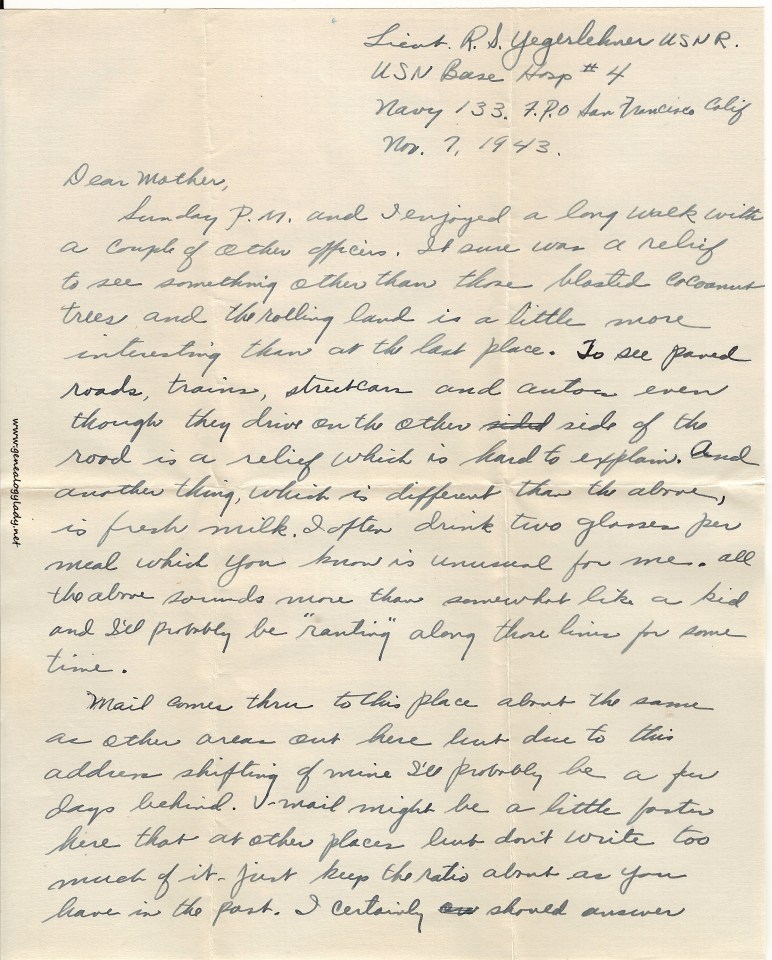 Lieut. R.S. Yegerlehner USNR.
USN Base Hosp # 4
Navy 133. F.P.O San Francisco Calif
Nov. 7, 1943.
Dear Mother,
Sunday P.M. and I enjoyed a long walk with
a couple of other officers. It sure was a relief
to see something other than those blasted cocoanut
trees and the rolling land is a little more
interesting than at the last place. To see paved
roads, trains, streetcars and autos even
though they drive on the other sided side of the
road is a relief which is hard to explain. And
another thing, which is different than the above,
is fresh milk. I often drink two glasses per
meal which you know is unusual for me. All
the above sounds more than somewhat like a kid
and I'll probably be "ranting" along those lines for some
time.
Mail comes thru to this place about the same
as other areas out here but due to this
address shifting of mine I'll probably be a few
days behind. V-mail might be a little faster
here that at other places but don't write too
much of it - just keep the ratio about as you
have in the past. I certainly should answer
www.genealogylady.net